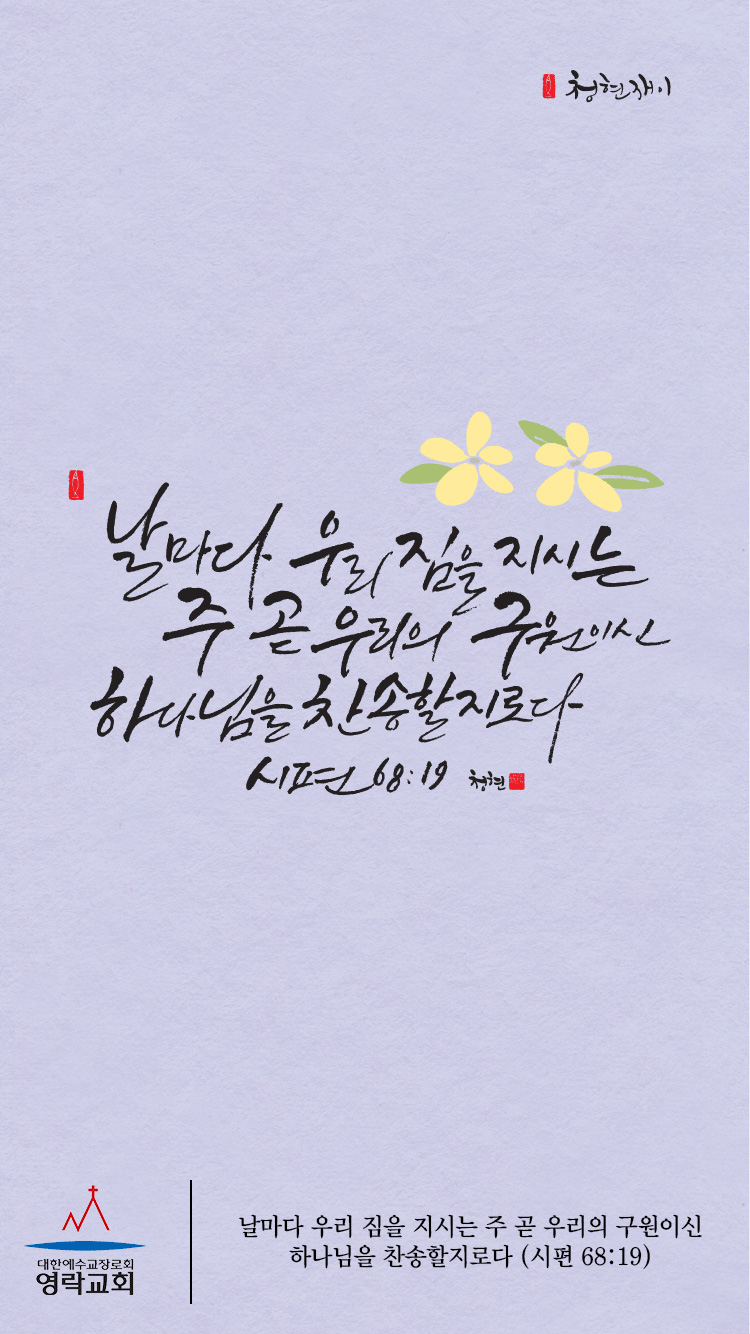 청현재이
날마다 우리 짐을 지시는
주 곧 우리의 구원이신
하나님을 찬송할지로다
시편 68:19 청현
대한예수교장로회
영락교회
날마다 우리 짐을 지시는 주 곧 우리의 구원이신
하나님을 찬송할지로다 (시편 68:19)